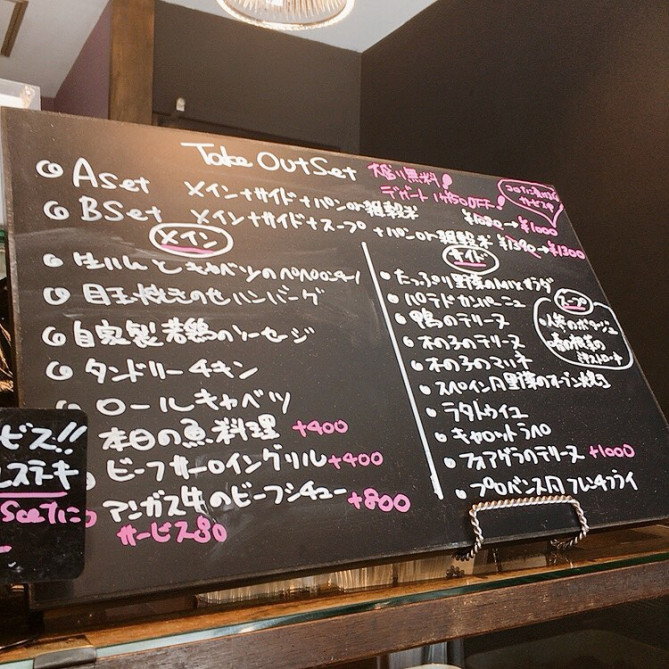 Take Out Set
大盛り無料!
デザート ¥50OFF!
Aset メイン+サイド+パンor雑穀米 ¥1080→¥1000
BSet メイン+サイド+スープ+パンor雑穀米 ¥1390→¥1300
メイン
生ハムとキャベツのペペロンチーノ
目玉焼きのせハンバーグ
自家製若鶏のソーセージ
タンドリーチキン
ロールキャベツ
本日の魚料理 +400
ビーフサーロイングリル +400
アンガス牛のビーフシチュー +800
サービス
サイド
たっぷり野菜のMixサラダ
パテドカンパーニュ
鴨のテリーヌ
木の子のテリーヌ
木の子のマリネ
スペイン風野菜のオーブン焼き
ラタトゥイユ
キャロットラペ
フォアグラのテリーヌ +1000
プロバンス風フレンチフライ
スープ
人参のポタージュ
ミネストローネ
ビス!!
ステキ